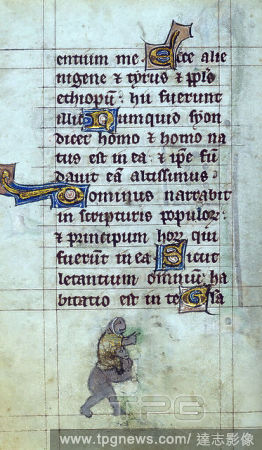 entium me. Ecce alie
nigene & tyrus & ppls
ethiopũ: hii fuerunt
illic Numquid syon
dicet homo & homo na
tus est in ea: & ipe fũ
davit eam altissimus.
Dominus narrabit
in scripturis populor:
& principum hor, qui
fuerũt in ea Sicut
letantium omniũ: ha
bitatio est in te Gla
TPG
www.tpgnews.com/ 達志影像